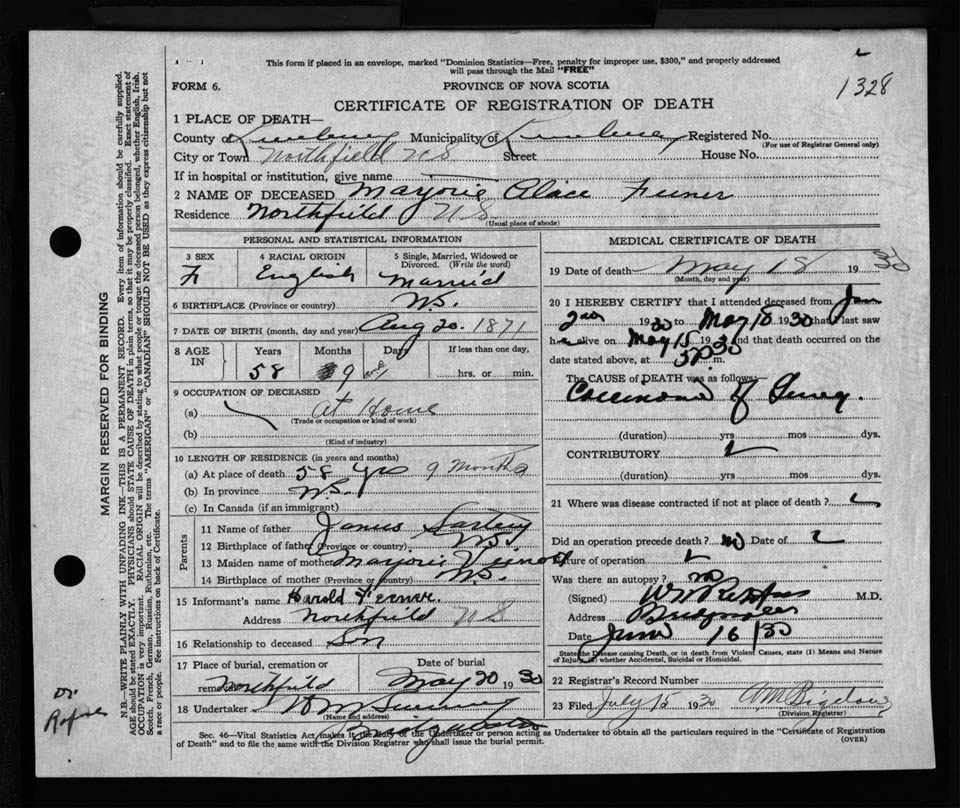 This form if placed in an envelope, marked "Dominion Statistics—Free, penalty for improper use, $300," and properly addressed
will pass through the Mail "FREE"
1328
FORM 6.
PROVINCE OF NOVA SCOTIA
CERTIFICATE OF REGISTRATION OF DEATH
1 PLACE OF DEATH—
County of Lunenburg Municipality of Lunenburg Registered No.
(For use of Registrar General only)
City or Town Northfield N S Street House No.
If in hospital or institution, give name
2 NAME OF DECEASED Marjorie Alace Feener
Residence Northfield N S
(Usual place of abode)
PERSONAL AND STATISTICAL INFORMATION
3 SEX
F
4 RACIAL ORIGIN
English
5 Single, Married, Widowed or Divorced. (Write the word)
Married
6 BIRTHPLACE (Province or country) N.S.
7 DATE OF BIRTH (month, day and year) Aug 20. 1871
8 AGE IN
Years Months Days If less than one day,
58 9 hrs. or min.
9 OCCUPATION OF DECEASED
(a) At Home
(Trade or occupation or kind of work)
(b)
(Kind of industry)
10 LENGTH OF RESIDENCE (in years and months)
(a) At place of death 58 yrs 9 Months
(b) In province N.S.
(c) In Canada (if an immigrant)
Parents
11 Name of father James
12 Birthplace of father (Province or country) N S
13 Maiden name of mother Marjorie
14 Birthplace of mother (Province or country) N.S.
15 Informant's name Harold Feener
Address Northfield N S
16 Relationship to deceased Son
17 Place of burial, cremation or removal Northfield
Date of burial
May 20 1930
18 Undertaker
(Name and address)
MEDICAL CERTIFICATE OF DEATH
19 Date of death May 18 1930
(Month, day and year)
20 I HEREBY CERTIFY that I attended deceased from
1930 to May 18 1930 that I last saw
h alive on May 15 19 30 and that death occurred on the
date stated above, at m.
The CAUSE of DEATH was as follows:
Carcinoma of
(duration) yrs mos dys.
CONTRIBUTORY
(duration) yrs mos dys.
21 Where was disease contracted if not at place of death?
Did an operation precede death? no Date of
Nature of operation
Was there an autopsy? no
(Signed) M.D.
Address Bridgewater
Date June 16/30
State the Disease causing Death, or in death from Violent Causes, state (1) Means and Nature
of Injury, (2) whether Accidental, Suicidal or Homicidal.
22 Registrar's Record Number
23 Filed July 15 1930
(Division Registrar)
Sec. 46—Vital Statistics Act, makes it the duty of the Undertaker or person acting as Undertaker to obtain all the particulars required in the "Certificate of Registration
of Death" and to file the same with the Division Registrar who shall issue the burial permit.
(OVER)
MARGIN RESERVED FOR BINDING
N.B.—WRITE PLAINLY WITH UNFADING INK—THIS IS A PERMANENT RECORD. Every item of information should be carefully supplied.
AGE should be stated EXACTLY. PHYSICIANS should STATE CAUSE OF DEATH in plain terms, so that it may be properly classified. Exact statement of
OCCUPATION is very important. RACIAL ORIGIN will be described by stating to what people or tongue the deceased person belonged, whether English, Irish,
Scotch, French, German, Russian, Ruthenian, etc. The terms "AMERICAN" or "CANADIAN" SHOULD NOT BE USED as they express citizenship but not
a race or people. See instructions on back of Certificate.
Dr